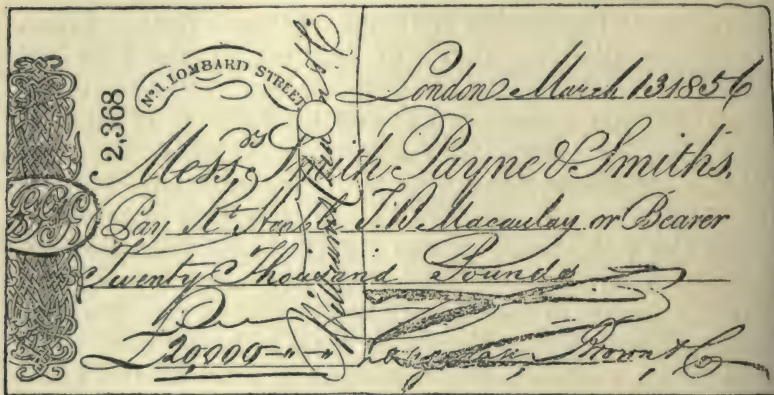 No. 1, LOMBARD STREET
2,368
London March 13 1856
Messrs Smith Payne & Smiths.
Pay Rt Honble T. B. Macaulay or Bearer
Twenty Thousand Pounds
£20,000 - " - "
Brown & Co
Williams & Co